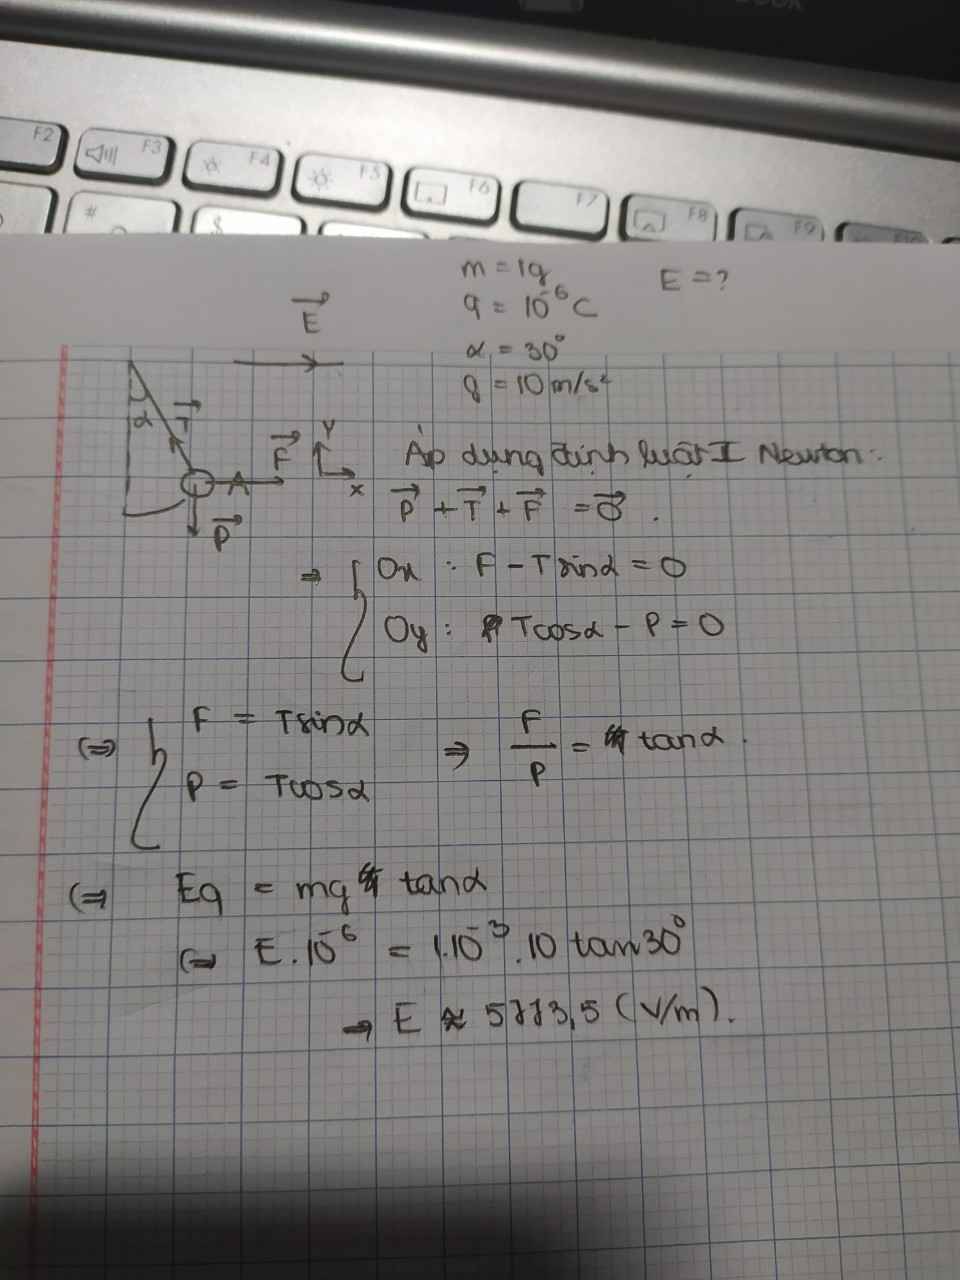 F2 F3 F4 F5 F6 F7 F8 F9
# $
m = 1g
E = ?
q = 10⁻⁶C
E⃗
α = 30°
g = 10 m/s²
α T⃗ F⃗ y x
P⃗
Áp dụng định luật I Newton:
P⃗ + T⃗ + F⃗ = 0⃗.
⇒ { Ox : F - T sinα = 0
Oy : Tcosα - P = 0
⇔ { F = Tsinα
P = Tcosα
⇒ F/P = tanα.
⇔ Eq = mg tanα
⇔ E.10⁻⁶ = 1.10⁻³.10 tan30°
→ E ≈ 5773,5 (V/m).